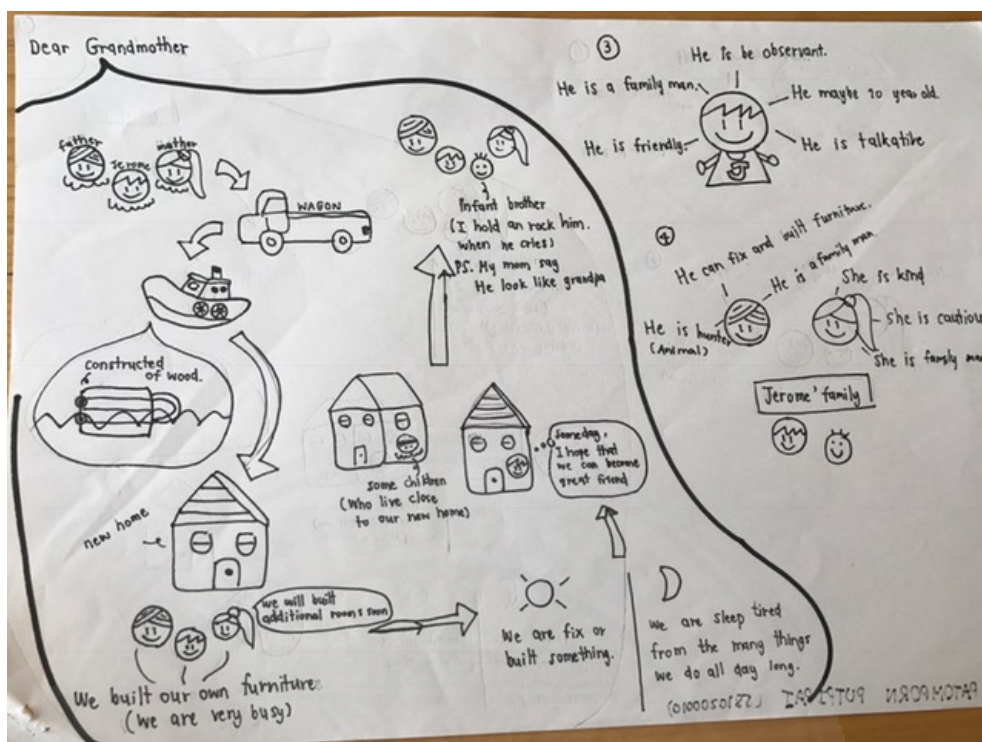 Dear Grandmother
father
Jerome
mother
WAGON
constructed
of wood.
new home
We built our own furniture
(We are very busy)
we will built
additional rooms soon
We are fix or
built something.
we are sleep tired
from the many things
we do all day long.
some children
(Who live close
to our new home)
Someday,
I hope that
we can become
great friend
Infant brother
(I hold an rock him.
when he cries)
PS. My mom say
He look like grandpa
③
He is be observant.
He is a family man.
He maybe 20 year old.
He is friendly.
He is talkative
④
He can fix and built furniture.
He is a family man.
He is hunter
(Animal)
She is kind
She is cautiou
She is family
Jerome' family
PATOMPORN PUTPIPAI (5510501000)